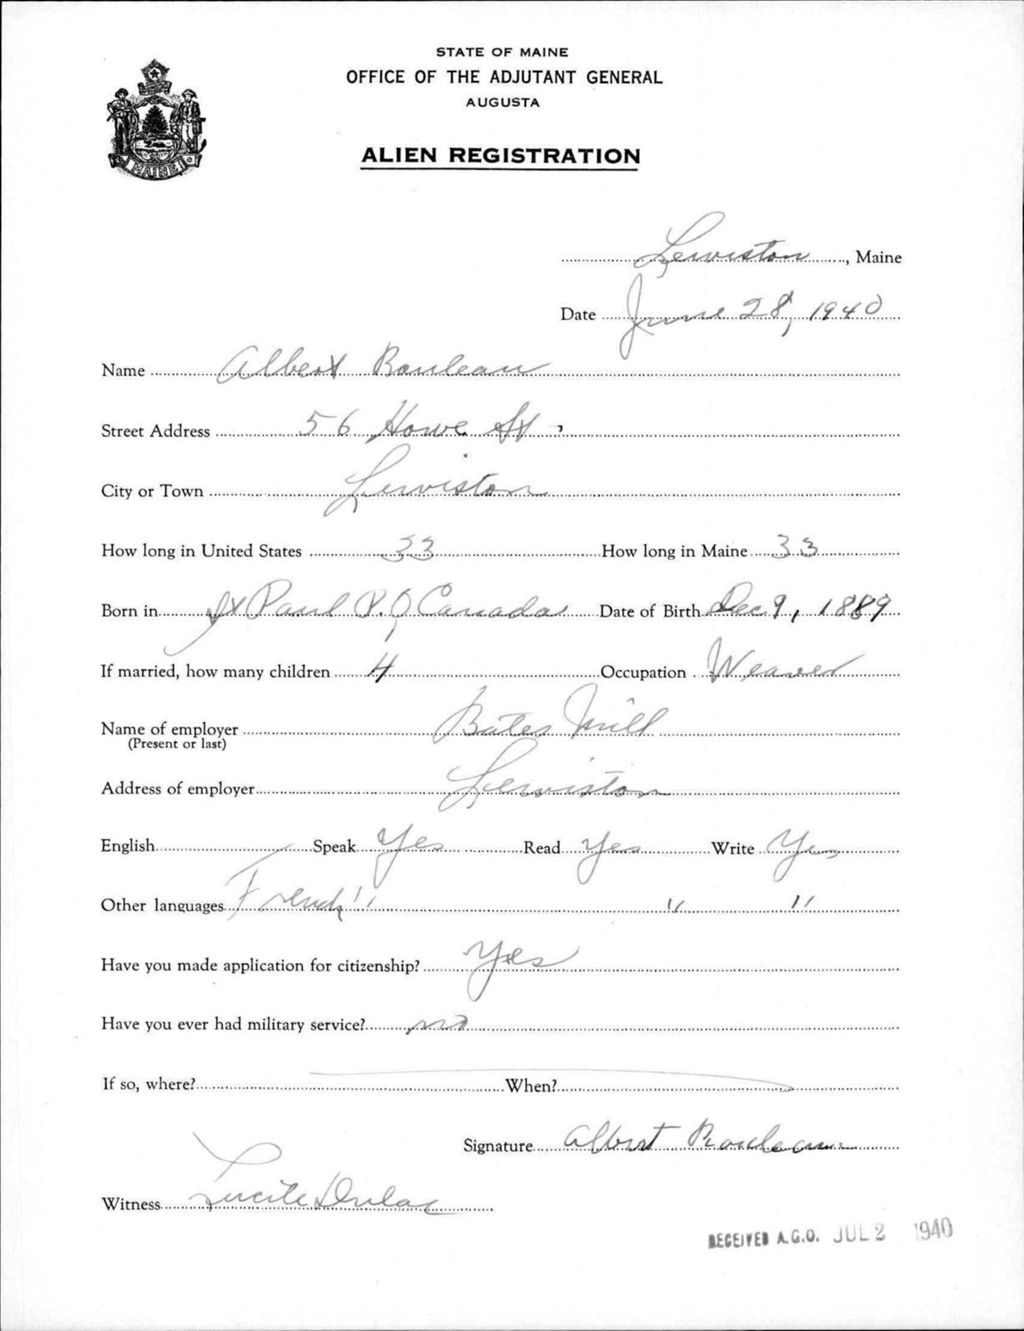 STATE OF MAINE
OFFICE OF THE ADJUTANT GENERAL
AUGUSTA
ALIEN REGISTRATION
MAINE
Lewiston, Maine
Date June 28, 1940
Name Albert Rouleau
Street Address 56 Howe St.
City or Town Lewiston
How long in United States 33 How long in Maine 33
Born in St Paul P.Q Canada Date of Birth Dec 9, 1889
If married, how many children 4 Occupation Weaver
Name of employer Bates Mill
(Present or last)
Address of employer Lewiston
English Speak Yes Read Yes Write Yes
Other languages French " " "
Have you made application for citizenship? Yes
Have you ever had military service? no
If so, where? When?
Signature Albert Rouleau
Witness Lucile Dulac
RECEIVED A.G.O. JUL 2 1940